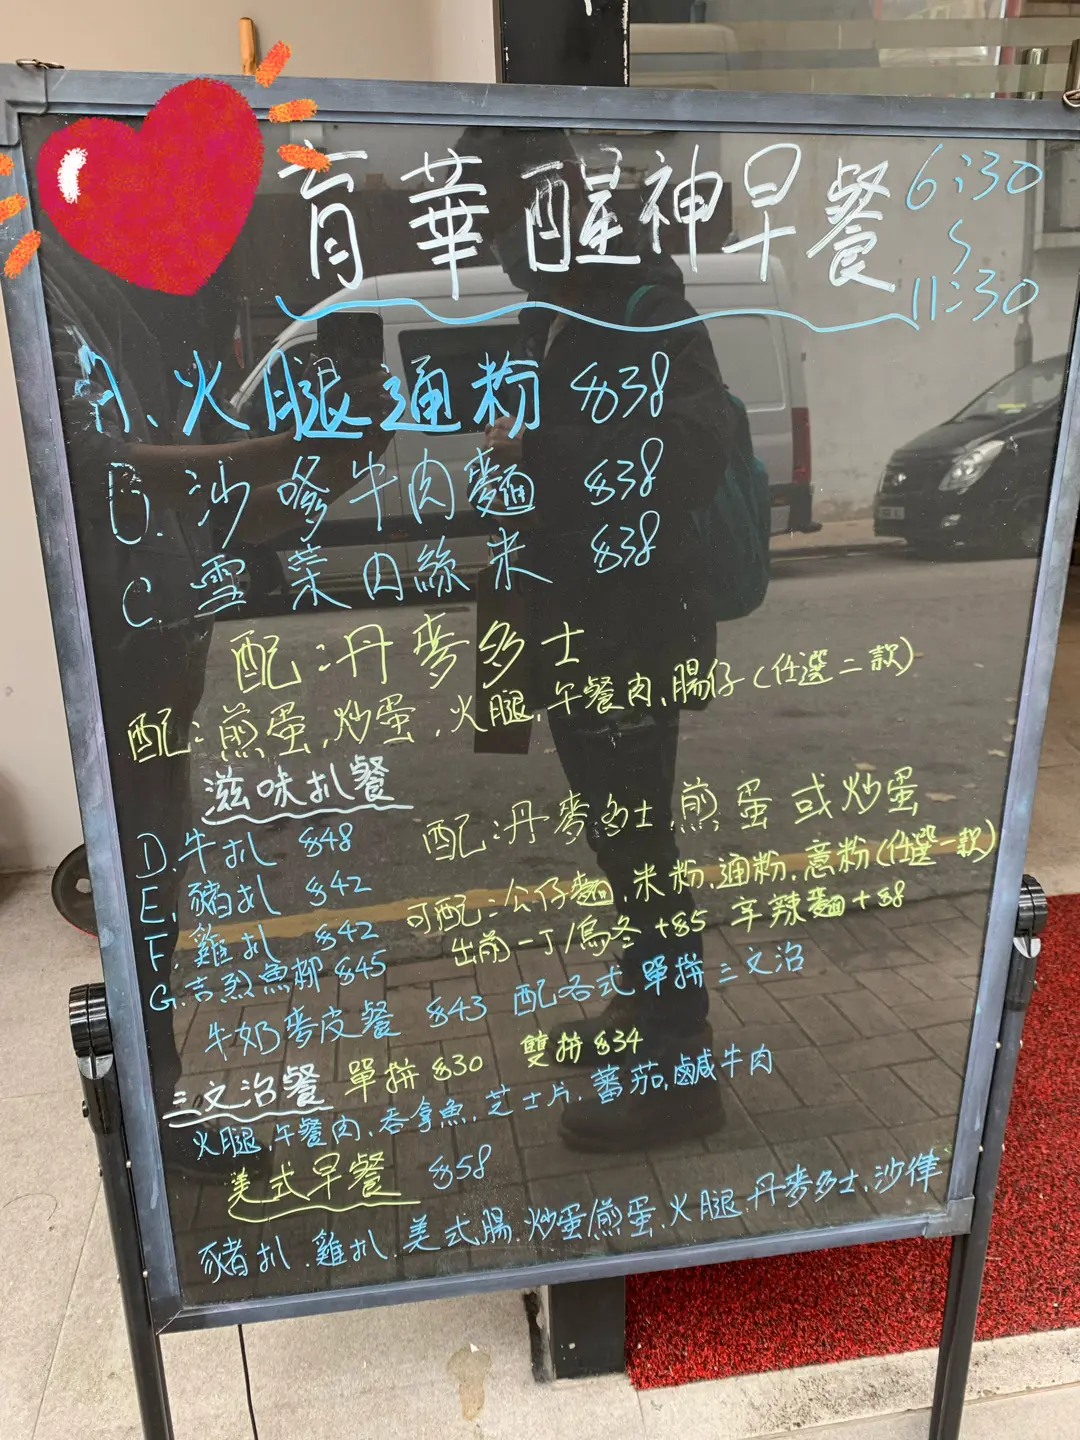 育華醒神早餐 6:30
~
11:30
A. 火腿通粉 $38
B. 沙爹牛肉麵 $38
C. 雪菜肉絲米 $38
配:丹麥多士
配:煎蛋,炒蛋,火腿,午餐肉,腸仔(任選二款)
滋味扒餐
D.牛扒 $48
配:丹麥多士 煎蛋或炒蛋
E.豬扒 $42
可配:公仔麵,米粉,通粉,意粉(任選一款)
F.雞扒 $42
出前一丁/烏冬+$5 辛辣麵+$8
G.吉烈魚柳 $45
牛奶麥皮餐 $43 配各式單拼三文治
三文治餐 單拼 $30 雙拼 $34
火腿,午餐肉,吞拿魚,芝士片,蕃茄,鹹牛肉
美式早餐 $58
豬扒.雞扒.美式腸.炒蛋/煎蛋.火腿.丹麥多士.沙律